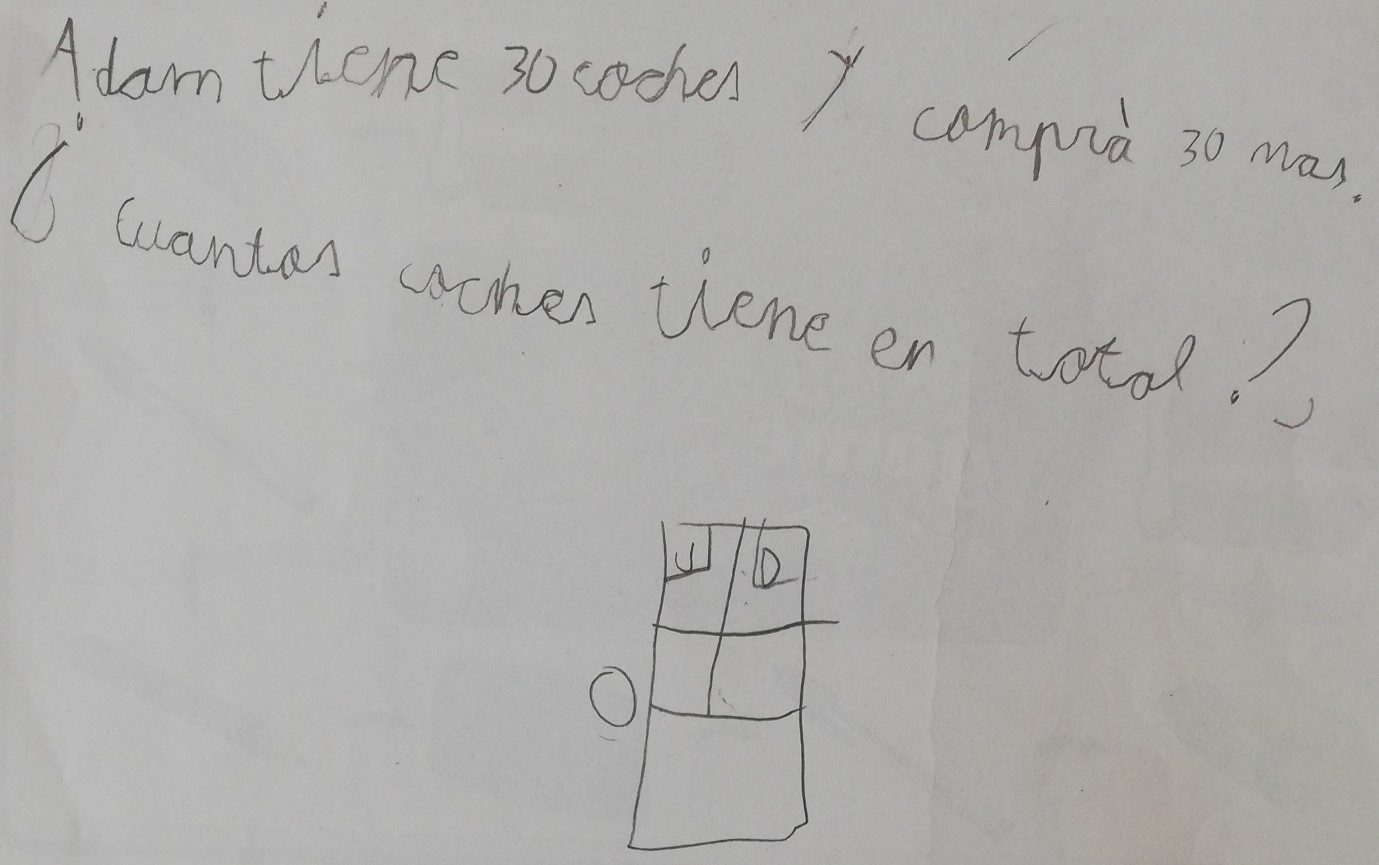 Adam tiene 30 coches y comprà 30 mas.
¿cuantos coches tiene en total?
U D